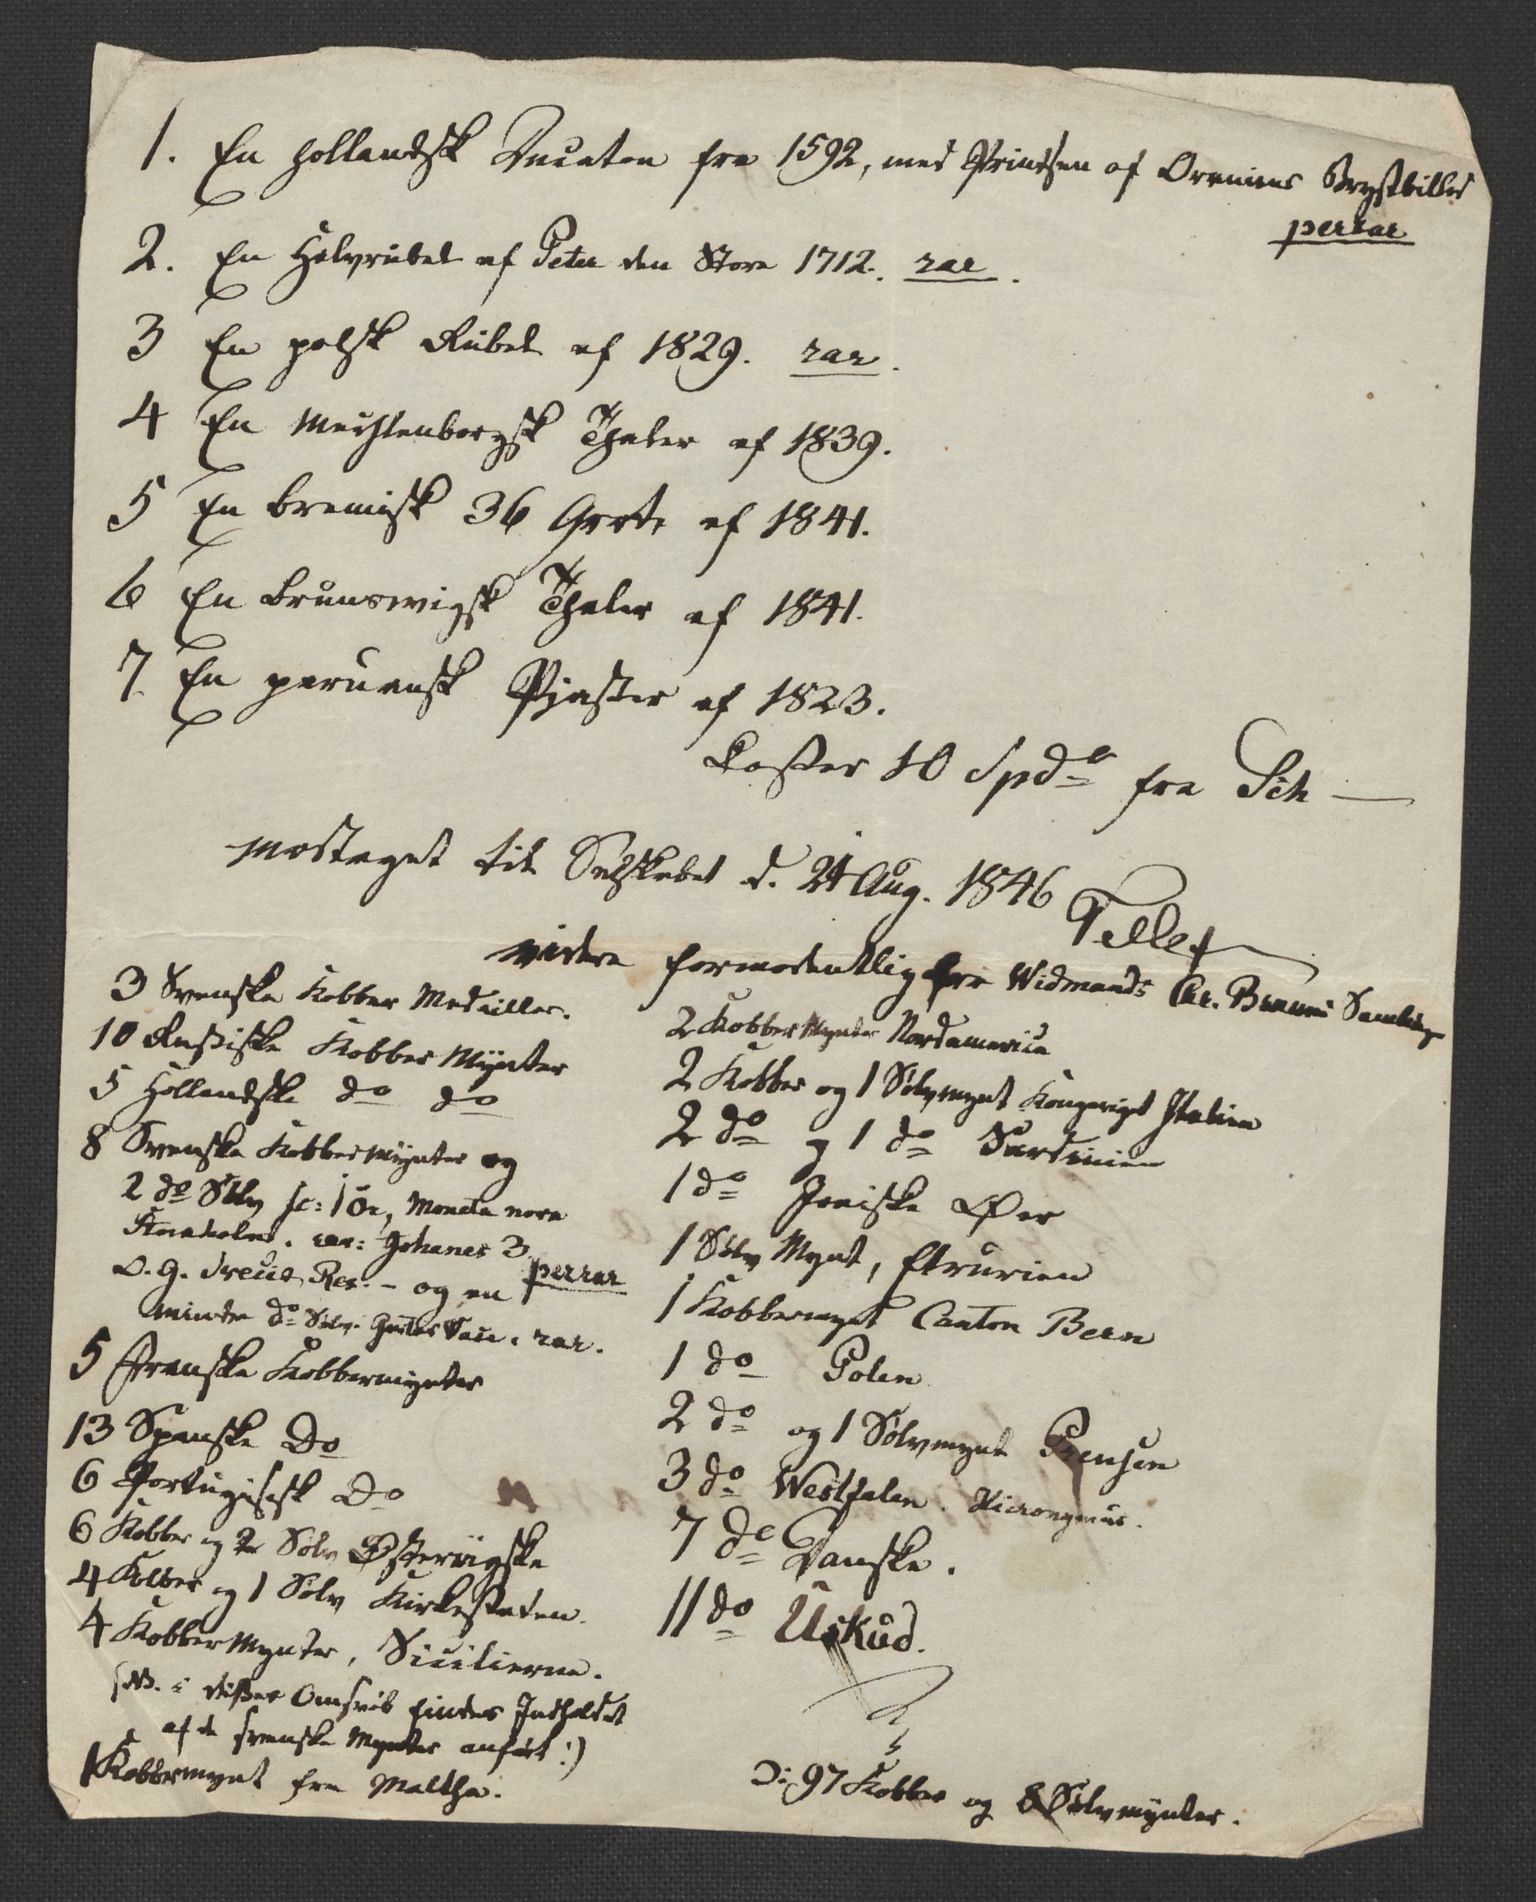 1. En hollandsk Ducaton fra 1592, med Prindsen af Oraniens Brystbilled
perrar
2. En Halvrubel af Peter den Store 1712. rar.
3 En polsk Rubel af 1829. rar.
4 En Mechlenborgsk Thaler af 1839.
5 En bremisk 36 Grote af 1841.
6 En brunswigsk Thaler af 1841.
7. En peruansk Pjaster af 1823.
Koster 10 Spdr fra Sch —
modtaget til Selskabet d. 24 Aug. 1846
Tellef
videre formodentlig fra Widmands Chr. Bruuns Samling
3 Svenske Kobber Medailler.
10 Russiske Kobber Mynter
5 Hollandske do do
8 Svenske Kobbermynter og
2 do Sølv sc: 1 Ör, Moneta nova
Stockholm. rar: Johanes 3
O. G. Sveciæ Rex. - og en perrar
mindre do Sølv. Gustav Vasa. rar.
5 Franske Kobbermynter
13 Spanske Do
6 Portugisisk Do
6 Kobber og 2 Sølv Østerrigske
4 Kobber og 1 Sølv Kirkestaten.
4 Kobber Mynter, Sicilierne.
(NB. i disses Omslab findes Indholdet
af de svenske Mynter anført!)
1 Kobbermynt fra Maltha.
2 Kobber Mynter Nordamerica
2 Kobber og 1 Sølvmynt Kongeriget Italien
2 do og 1 do Sardinien
1 do Joniske Øer
1 Sølv Mynt, Etrurien
1 Kobbermynt Canton Bern
1 do Polen
2 do og 1 Sølvmynt Preusen
3 do Westfalen. Hieronymus.
7 do Danske.
11 do Uskud.
ɔ: 97 Kobber og 8 Sølvmynter.